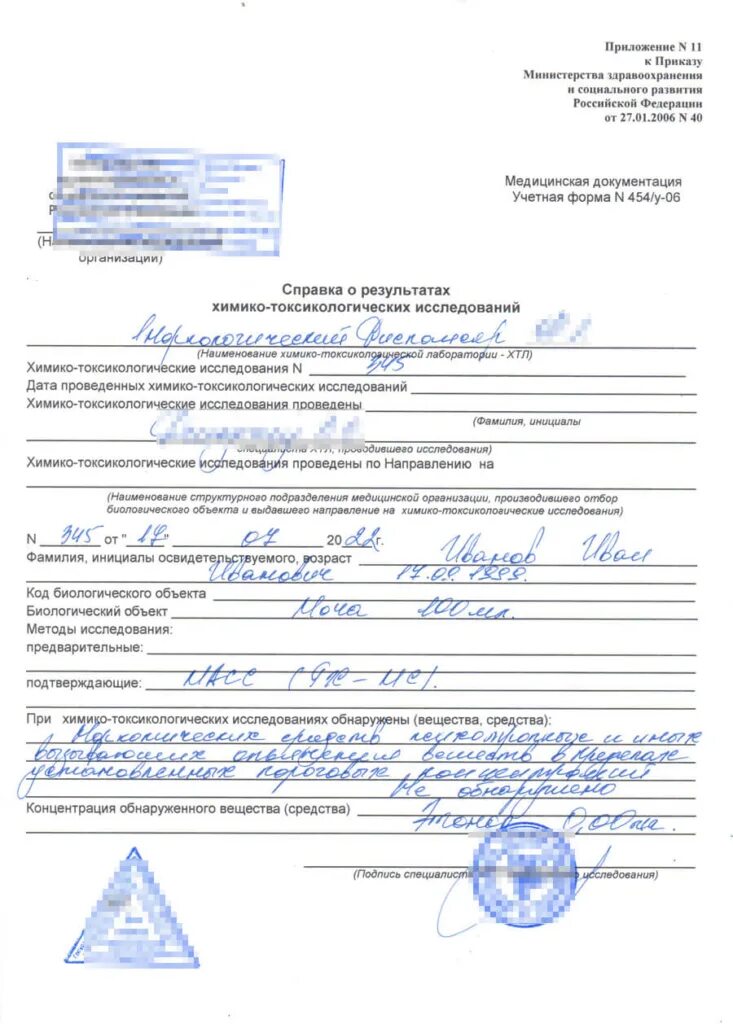 Приложение N 11
к Приказу
Министерства здравоохранения
и социального развития
Российской Федерации
от 27.01.2006 N 40
Медицинская документация
Учетная форма N 454/у-06
организации)
Справка о результатах
химико-токсикологических исследований
Наркологический Диспансер
(Наименование химико-токсикологической лаборатории - ХТЛ)
Химико-токсикологические исследования N 345
Дата проведенных химико-токсикологических исследований
Химико-токсикологические исследования проведены
(Фамилия, инициалы
специалиста ХТЛ, проводившего исследования)
Химико-токсикологические исследования проведены по Направлению на
(Наименование структурного подразделения медицинской организации, производившего отбор
биологического объекта и выдавшего направление на химико-токсикологические исследования)
N 345 от " 17 " 07 2022г.
Фамилия, инициалы освидетельствуемого, возраст Иванов Иван
Иванович 17.09.1999.
Код биологического объекта
Биологический объект Моча 100мл.
Методы исследования:
предварительные:
подтверждающие: МАСС (ГЖ-МС).
При химико-токсикологических исследованиях обнаружены (вещества, средства):
Наркотических средств психотропных и иных
вызывающих опьянения веществ в пределах
установленных пороговых концентраций
Не обнаружено
Концентрация обнаруженного вещества (средства)
Этанол 0,00
(Подпись специалист исследования)